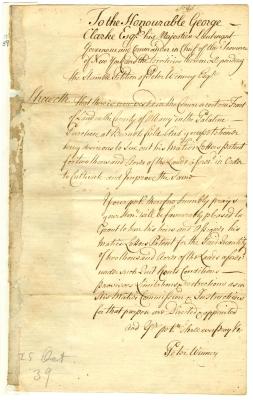 To the Honourable George
Clarke Esqr his Majesties Lieutenant
Governour and Commander in Chief of the Province
of New York and the Territories thereon Depending
the Humble Petition of Peter Winney Esqr
Sheweth That there are
Land in the County of Albany in the Palatine
Purchase at Burnet field And your petitioner
being desirous to Sue out his Majties Letters patent
for two thousand Acres of the Lands aforesd in Order
to Cultivate and Improve the Same
Your petr therefore humbly prays
your Honr will be favourably pleased to
Grant to him his heirs and Assigns his
Majties Letters Patent for the Said Quantity
of two thousand Acres of the Lands aforesd
under such Quit Rents Conditions
Provisoes Limitations & Restrictions as in
His Majties Commission & Instructions
for that purpose are Directed & appointed
and Yr petr Shall ever Pray &c
Peter Winney
25 Oct
39